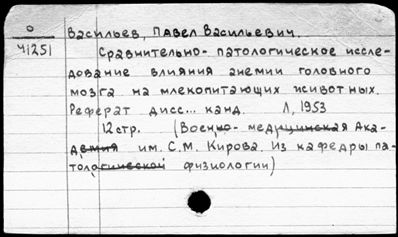 О
Ч1251
Васильев, Павел Васильевич.
Сравнительно-патологическое иссле-
дование влияния анемии головного
мозга на млекопитающих животных.
Реферат дисс... канд. Л, 1953
12стр. (Военно-медицинская Ака-
демия им. С.М. Кирова. Из кафедры па-
тологической физиологии)